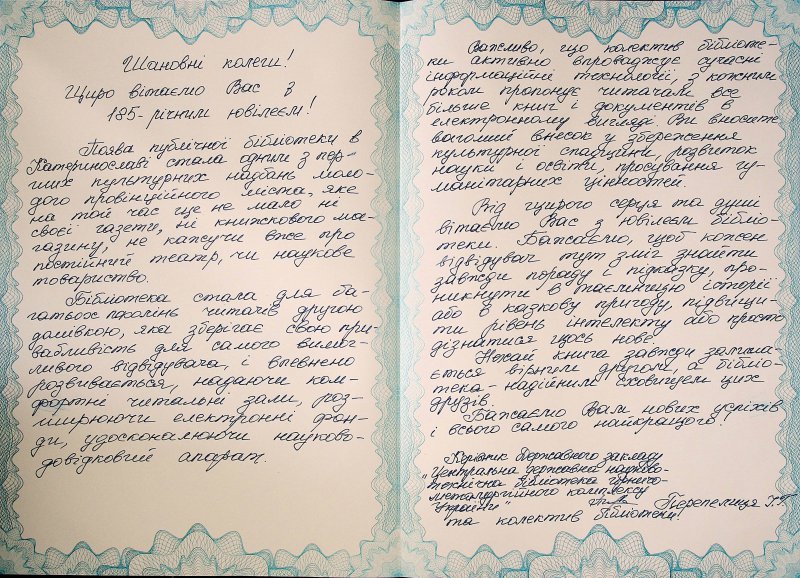 Шановні колеги!
Щиро вітаємо Вас з
185-річним ювілеєм!
Поява публічної бібліотеки в
Катеринославі стала одним з пер-
ших культурних надбань моло-
дого провінційного міста, яке
на той час ще не мало ні
своєї газети, ні книжкового ма-
газину, не кажучи вже про
постійний театр, чи наукове
товариство.
Бібліотека стала для ба-
гатьох поколінь читачів другою
домівкою, яка зберігає свою при-
вабливість для самого вимог-
ливого відвідувача, і впевнено
розвивається, надаючи ком-
фортні читальні зали, роз-
ширюючи електронні фон-
ди, удосконалюючи науково-
довідковий апарат.
Важливо, що колектив бібліоте-
ки активно впроваджує сучасні
інформаційні технології, з кожним
роком пропонує читачам все
більше книг і документів в
електронному вигляді. Ви вносите
вагомий внесок у збереження
культурної спадщини, розвиток
науки і освіти, просування гу-
манітарних цінностей.
Від щирого серця та душі
вітаємо Вас з ювілеєм бібліо-
теки. Бажаємо, щоб кожен
відвідувач тут зміг знайти
завжди пораду і підказку, про-
никнути в таємницю історії
або в казкову пригоду, підвищи-
ти рівень інтелекту або просто
дізнатися щось нове.
Нехай книга завжди залиша-
ється вірним другом, а бібліо-
тека - надійним сховищем цих
друзів.
Бажаємо Вам нових успіхів
і всього самого найкращого!
Керівник Державного закладу
"Центральна державна науково-
технічна бібліотека гірничо-
металургійного комплексу
України" Перепелиця Х.Г.
та колектив бібліотеки!